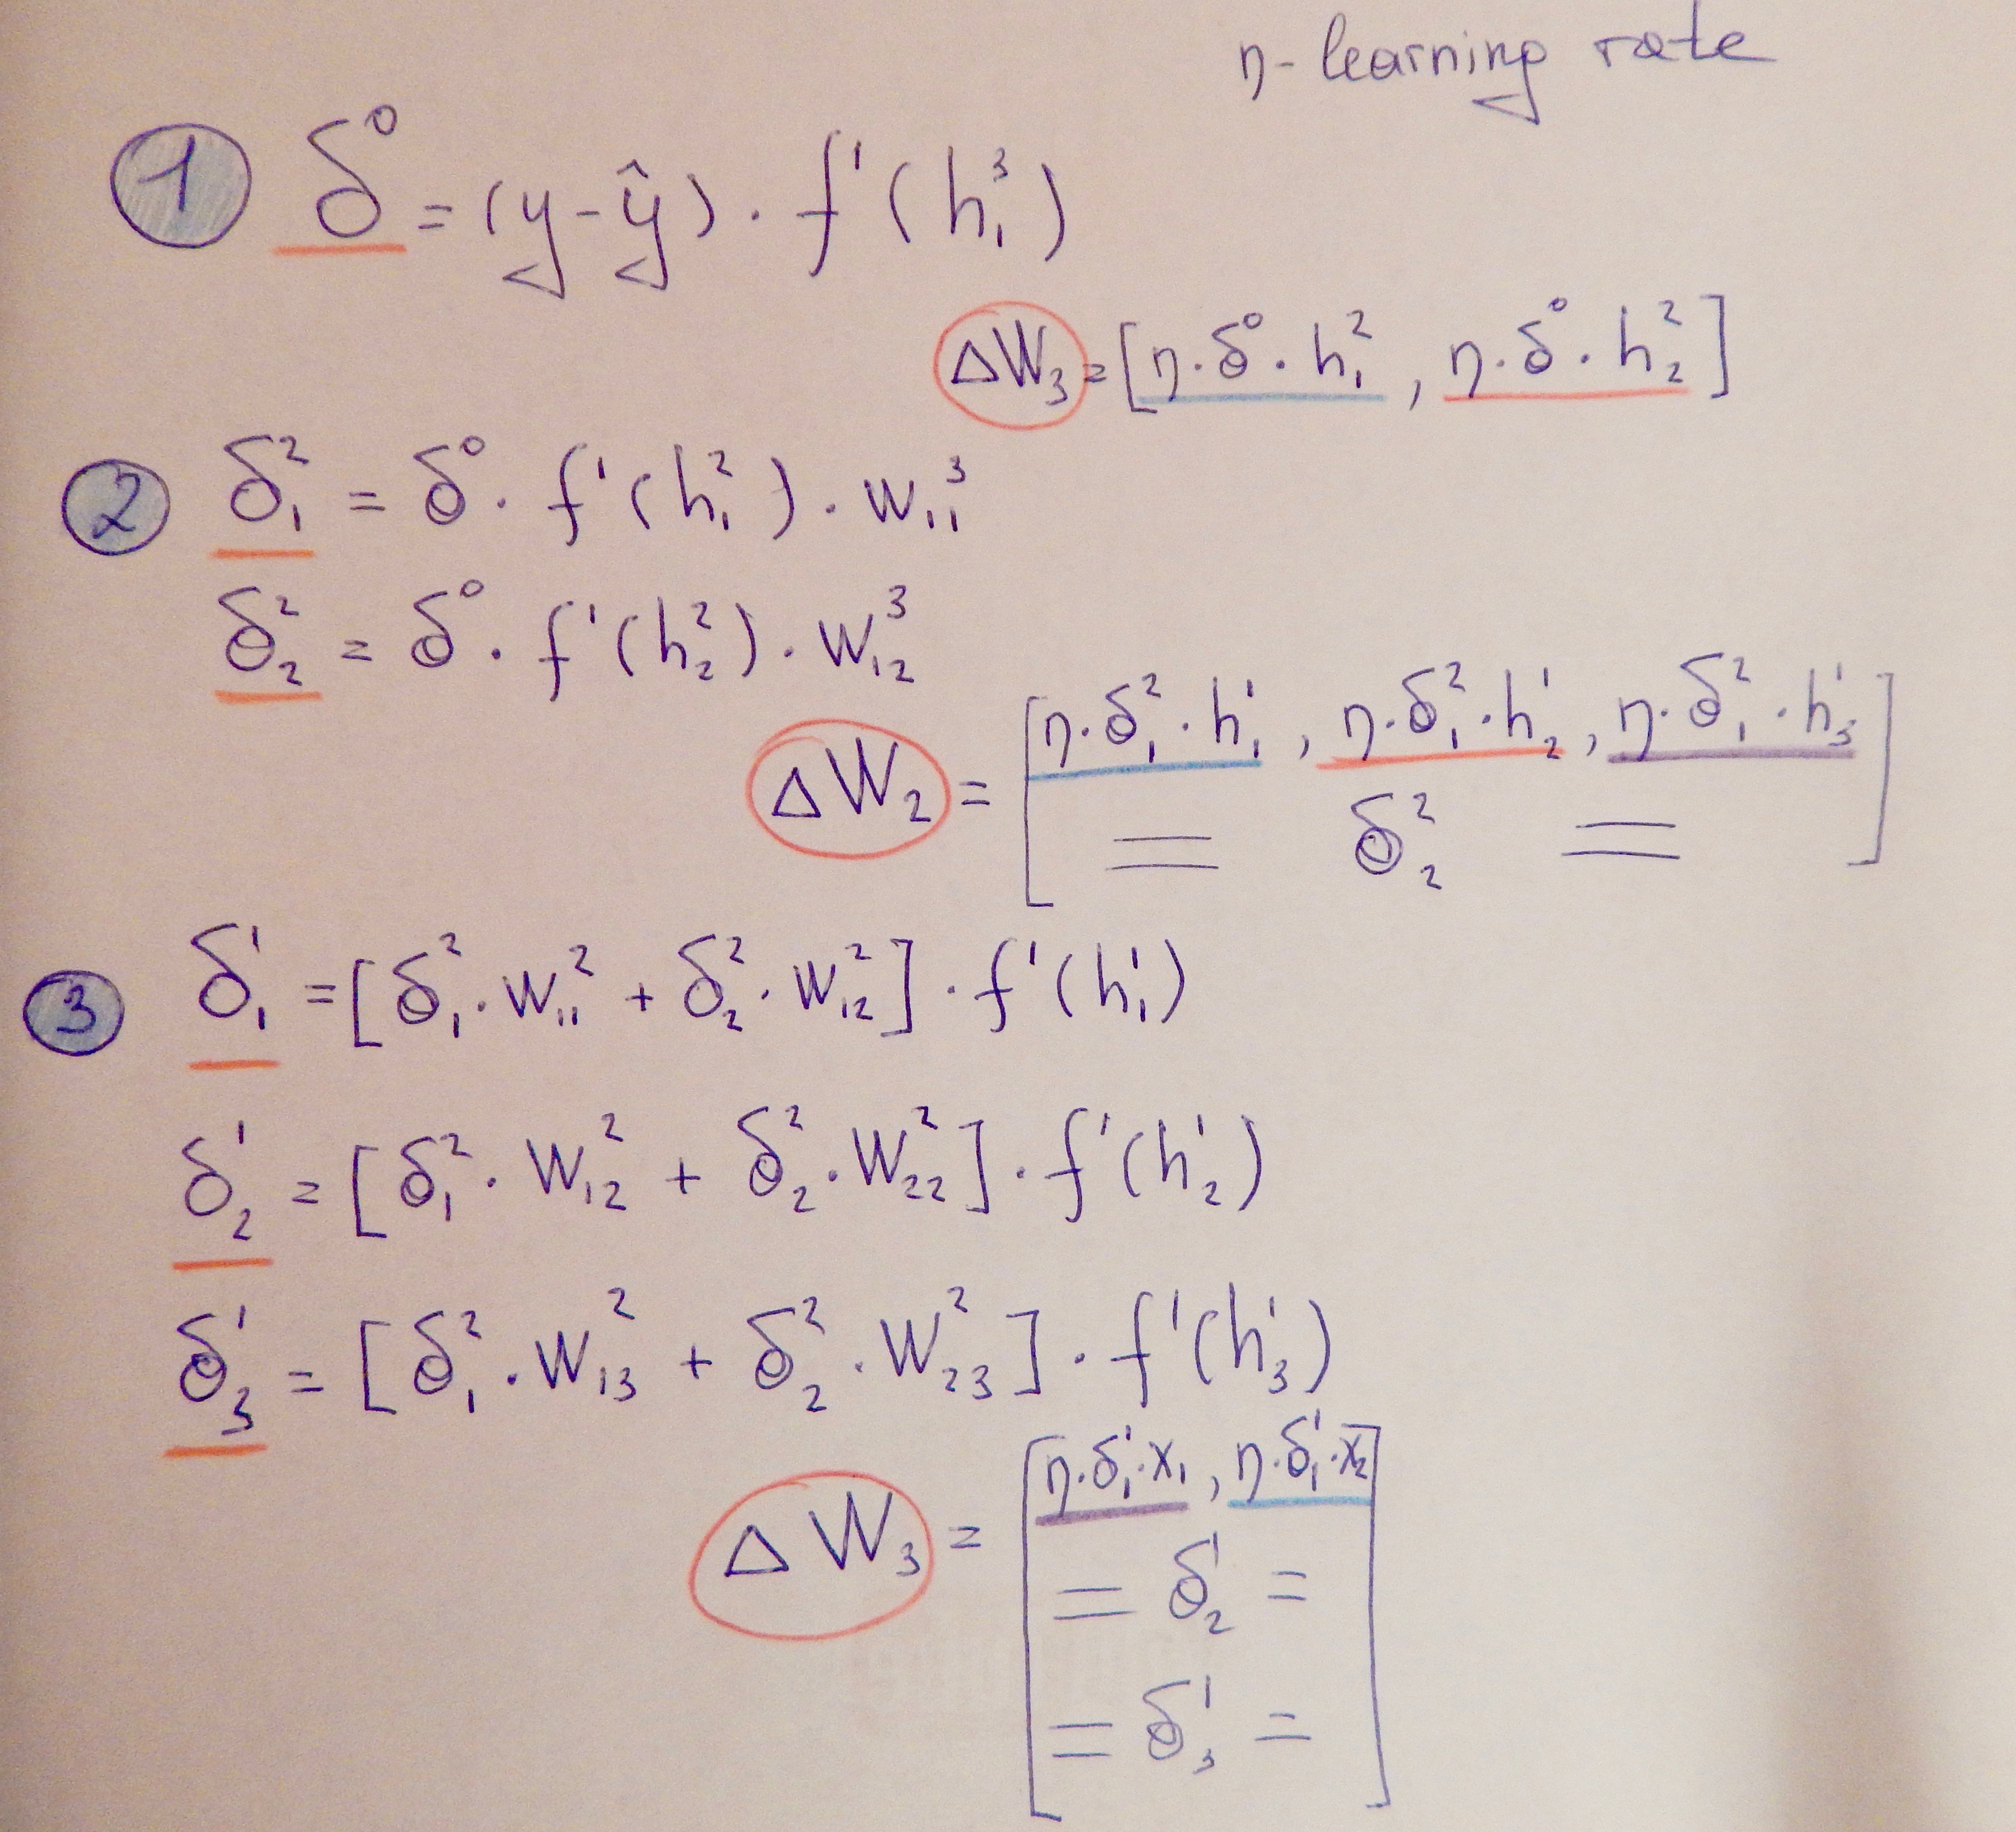 η - learning rate
① δ⁰ = (y - ŷ) · f'(h₁³)
ΔW₃ = [η · δ⁰ · h₁², η · δ⁰ · h₂²]
② δ₁² = δ⁰ · f'(h₁²) · W₁₁³
δ₂² = δ⁰ · f'(h₂²) · W₁₂³
[η · δ₁² · h₁¹, η · δ₁² · h₂¹, η · δ₁² · h₃¹]
ΔW₂ =
= δ₂² =
③ δ₁¹ = [δ₁² · W₁₁² + δ₂² · W₁₂²] · f'(h₁¹)
δ₂¹ = [δ₁² · W₁₂² + δ₂² · W₂₂²] · f'(h₂¹)
δ₃¹ = [δ₁² · W₁₃² + δ₂² · W₂₃²] · f'(h₃¹)
[η · δ₁¹ · x₁, η · δ₁¹ · x₂]
ΔW₃ =
= δ₂¹ =
= δ₃¹ =